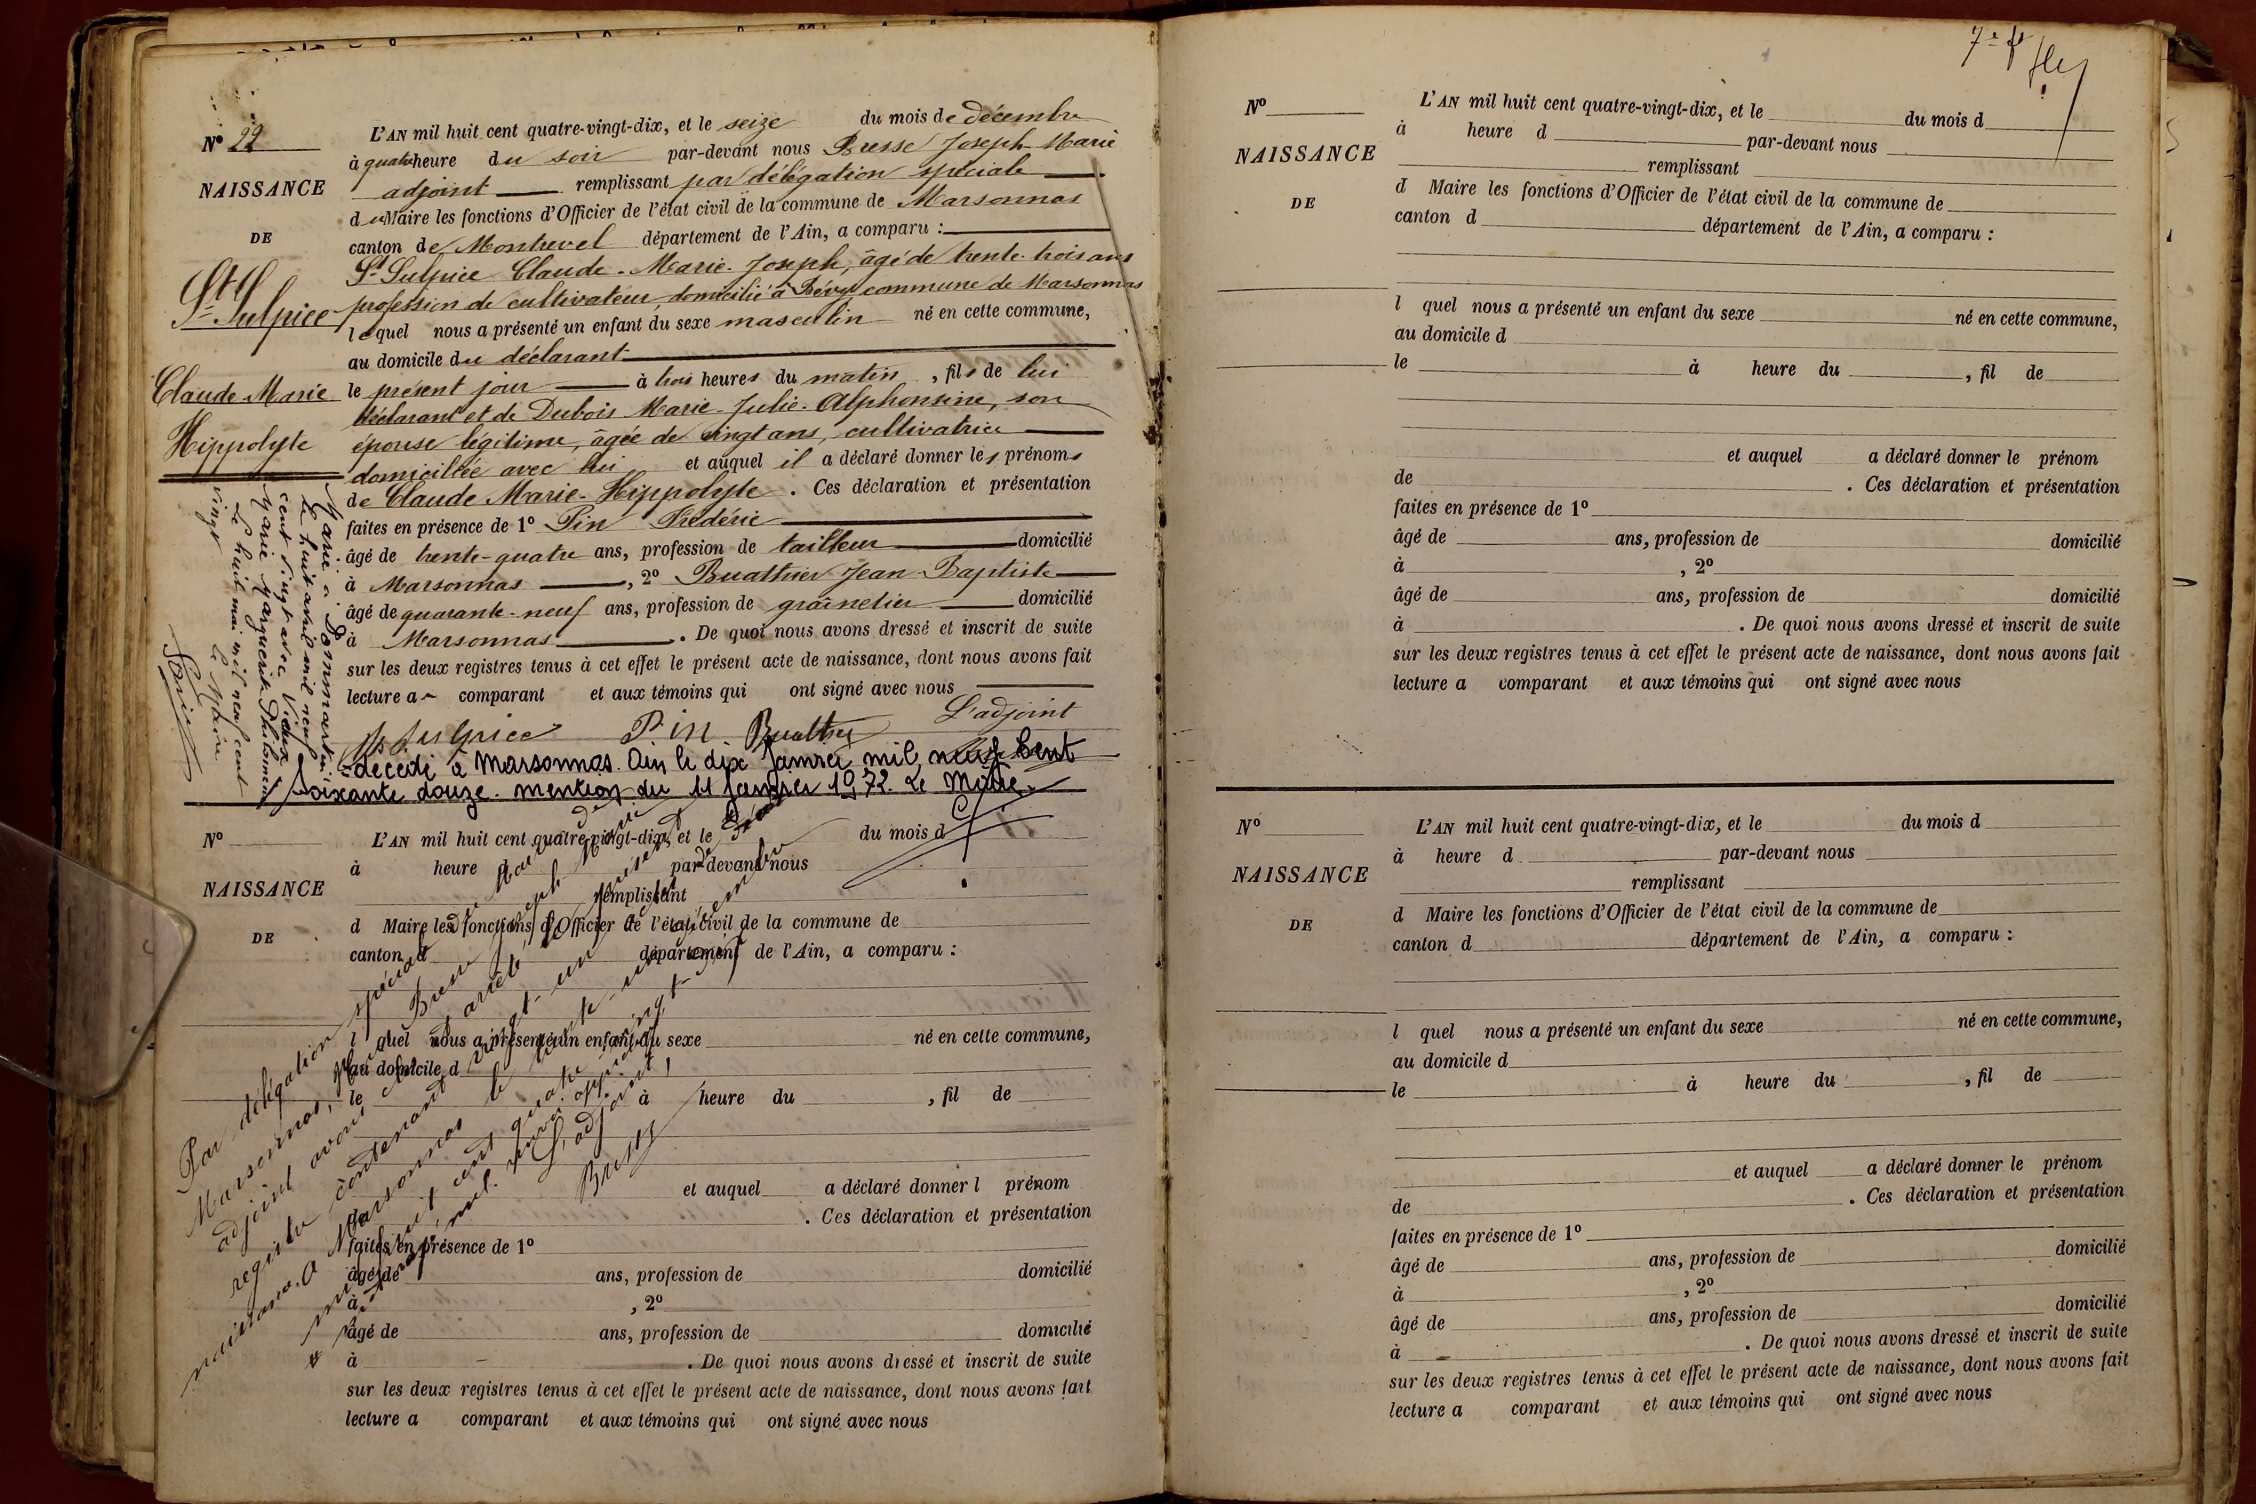 N° 22
NAISSANCE
DE
St Sulpice
Claude Marie
Hippolyte
L'AN mil huit cent quatre-vingt-dix, et le seize du mois de décembre
à quatre heure du soir par-devant nous Bresse Joseph-Marie
adjoint remplissant par délégation spéciale
du Maire les fonctions d'Officier de l'état civil de la commune de Marsonnas
canton de Montrevel département de l'Ain, a comparu :
St Sulpice Claude-Marie-Joseph, âgé de trente-trois ans
profession de cultivateur, domicilié à Bévy commune de Marsonnas
lequel nous a présenté un enfant du sexe masculin né en cette commune,
au domicile du déclarant
le présent jour à trois heures du matin, fils de lui
déclarant et de Dubois Marie-Julie-Alphonsine, son
épouse légitime, âgée de vingt ans, cultivatrice
domiciliée avec lui et auquel il a déclaré donner les prénoms
de Claude Marie-Hippolyte. Ces déclaration et présentation
faites en présence de 1° Pin Frédéric
âgé de trente-quatre ans, profession de tailleur domicilié
à Marsonnas, 2° Buathier Jean-Baptiste
âgé de quarante-neuf ans, profession de grainetier domicilié
à Marsonnas. De quoi nous avons dressé et inscrit de suite
sur les deux registres tenus à cet effet le présent acte de naissance, dont nous avons fait
lecture au comparant et aux témoins qui ont signé avec nous
L'adjoint
St Sulpice Pin Buathier
Marié à Dommartin
le huit avril mil neuf
cent vingt avec
Marie Marguerite Philomène
Le huit mai mil neuf cent
vingt Le Maire
décédé à Marsonnas. Ain le dix Janvier mil neuf Cent
Soixante douze. mention du 11 Janvier 1972. Le Maire.
N°
NAISSANCE
DE
L'AN mil huit cent quatre-vingt-dix, et le du mois d
à heure d par-devant nous
remplissant
d Maire les fonctions d'Officier de l'état civil de la commune de
canton d département de l'Ain, a comparu :
l quel nous a présenté un enfant du sexe né en cette commune,
au domicile d
le à heure du , fil de
et auquel a déclaré donner l prénom
de . Ces déclaration et présentation
faites en présence de 1°
âgé de ans, profession de domicilié
à , 2°
âgé de ans, profession de domicilié
à . De quoi nous avons dressé et inscrit de suite
sur les deux registres tenus à cet effet le présent acte de naissance, dont nous avons fait
lecture a comparant et aux témoins qui ont signé avec nous
Par délégation spéciale du Maire de
Marsonnas, Nous Bresse Joseph Marie
adjoint avons clos et arrêté le présent
registre contenant vingt-un
naissance. A Marsonnas le trente-un décembre
mil huit cent quatre-vingt-dix
L'adjoint,
Bresse
7e f
N°
NAISSANCE
DE
L'AN mil huit cent quatre-vingt-dix, et le du mois d
à heure d par-devant nous
remplissant
d Maire les fonctions d'Officier de l'état civil de la commune de
canton d département de l'Ain, a comparu :
l quel nous a présenté un enfant du sexe né en cette commune,
au domicile d
le à heure du , fil de
et auquel a déclaré donner le prénom
de . Ces déclaration et présentation
faites en présence de 1°
âgé de ans, profession de domicilié
à , 2°
âgé de ans, profession de domicilié
à . De quoi nous avons dressé et inscrit de suite
sur les deux registres tenus à cet effet le présent acte de naissance, dont nous avons fait
lecture a comparant et aux témoins qui ont signé avec nous
N°
NAISSANCE
DE
L'AN mil huit cent quatre-vingt-dix, et le du mois d
à heure d par-devant nous
remplissant
d Maire les fonctions d'Officier de l'état civil de la commune de
canton d département de l'Ain, a comparu :
l quel nous a présenté un enfant du sexe né en cette commune,
au domicile d
le à heure du , fil de
et auquel a déclaré donner le prénom
de . Ces déclaration et présentation
faites en présence de 1°
âgé de ans, profession de domicilié
à , 2°
âgé de ans, profession de domicilié
à . De quoi nous avons dressé et inscrit de suite
sur les deux registres tenus à cet effet le présent acte de naissance, dont nous avons fait
lecture a comparant et aux témoins qui ont signé avec nous